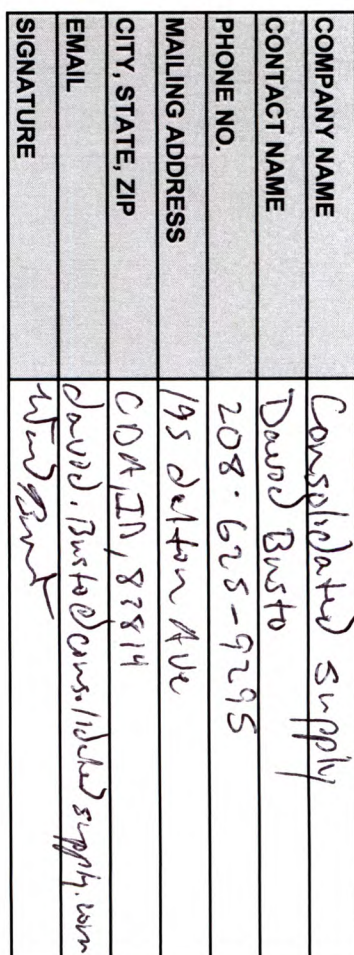 COMPANY NAME Consolidated Supply
CONTACT NAME David Busto
PHONE NO. 208-625-9295
MAILING ADDRESS 195 dalton Ave
CITY, STATE, ZIP CDA, ID, 83814
EMAIL david.Busto@consolidatedsupply.com
SIGNATURE